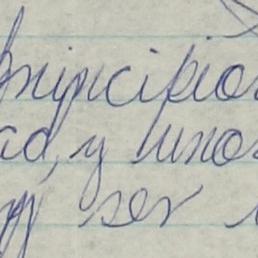 principios
ad, y unos
ser